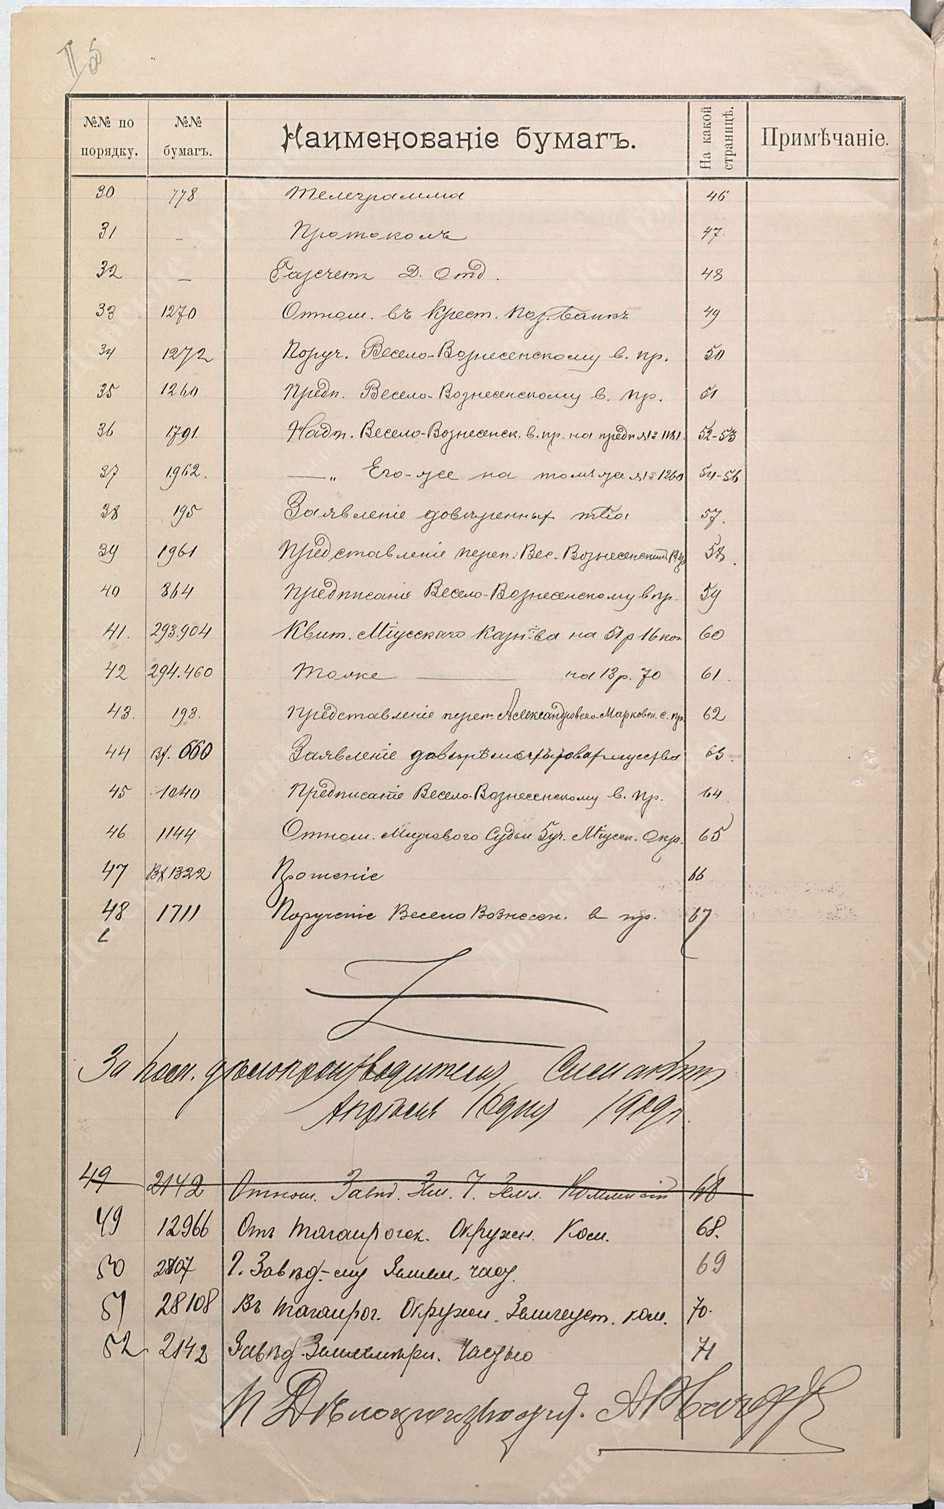 II 5
№№ по порядку. №№ бумагъ. Наименованіе бумагъ. На какой страницѣ. Примѣчаніе.
30 778 Телеграмма 46
31 – Протоколъ 47
32 – Разсчетъ Д. Отд. 48
33 1270 Отнош. въ Крест. Поз. Банкъ 49
34 1272 Поруч. Весело-Вознесенскому в. пр. 50
35 1260 Предп. Весело-Вознесенскому в. пр. 51
36 1791 Надп. Весело-Вознесенск. в. пр. на предп № 1181 52-53
37 1962. —„ Его-же на томъ за № 1260 54-56
38 195 Заявленіе довѣренных т-ва 57.
39 1961 Представленіе переп. Вес.-Вознесенск. 58.
40 864 Предписаніе Весело-Вознесенскому в пр. 59
41. 293.904 Квит. Міусскаго Казн-ва на 51 р 16 коп 60
42 294.460 Тоже — на 13 р. 70 61.
43. 193. Представленіе переп. Александровско-Марковск. с. пр. 62
44 Вх. 660 Заявленіе товарищества 63.
45 1040 Предписаніе Весело-Вознесенскому в. пр. 64
46 1144 Отнош. Мирового Судьи 5 уч. Міусск. Окр. 65
47 Вх 1322 Прошеніе 66
48 1711 Порученіе Весело Вознесен. в пр. 67
За дѣлопроизводителя
Апрѣля 16 дня 1909 г.
49 2142 Отнош. Завѣд. Зем. Ч. Земл. Коммисіи 68
49 12966 Отъ Таганрогск. Окружн. Ком. 68.
50 2807 Г. Завѣд-му Землем. част. 69
51 28108 Въ Таганрог. Окружн. Землеуст. ком. 70.
52 2142 Завѣд. Землемѣрн. Частью 71
И Дѣлопроизвод.